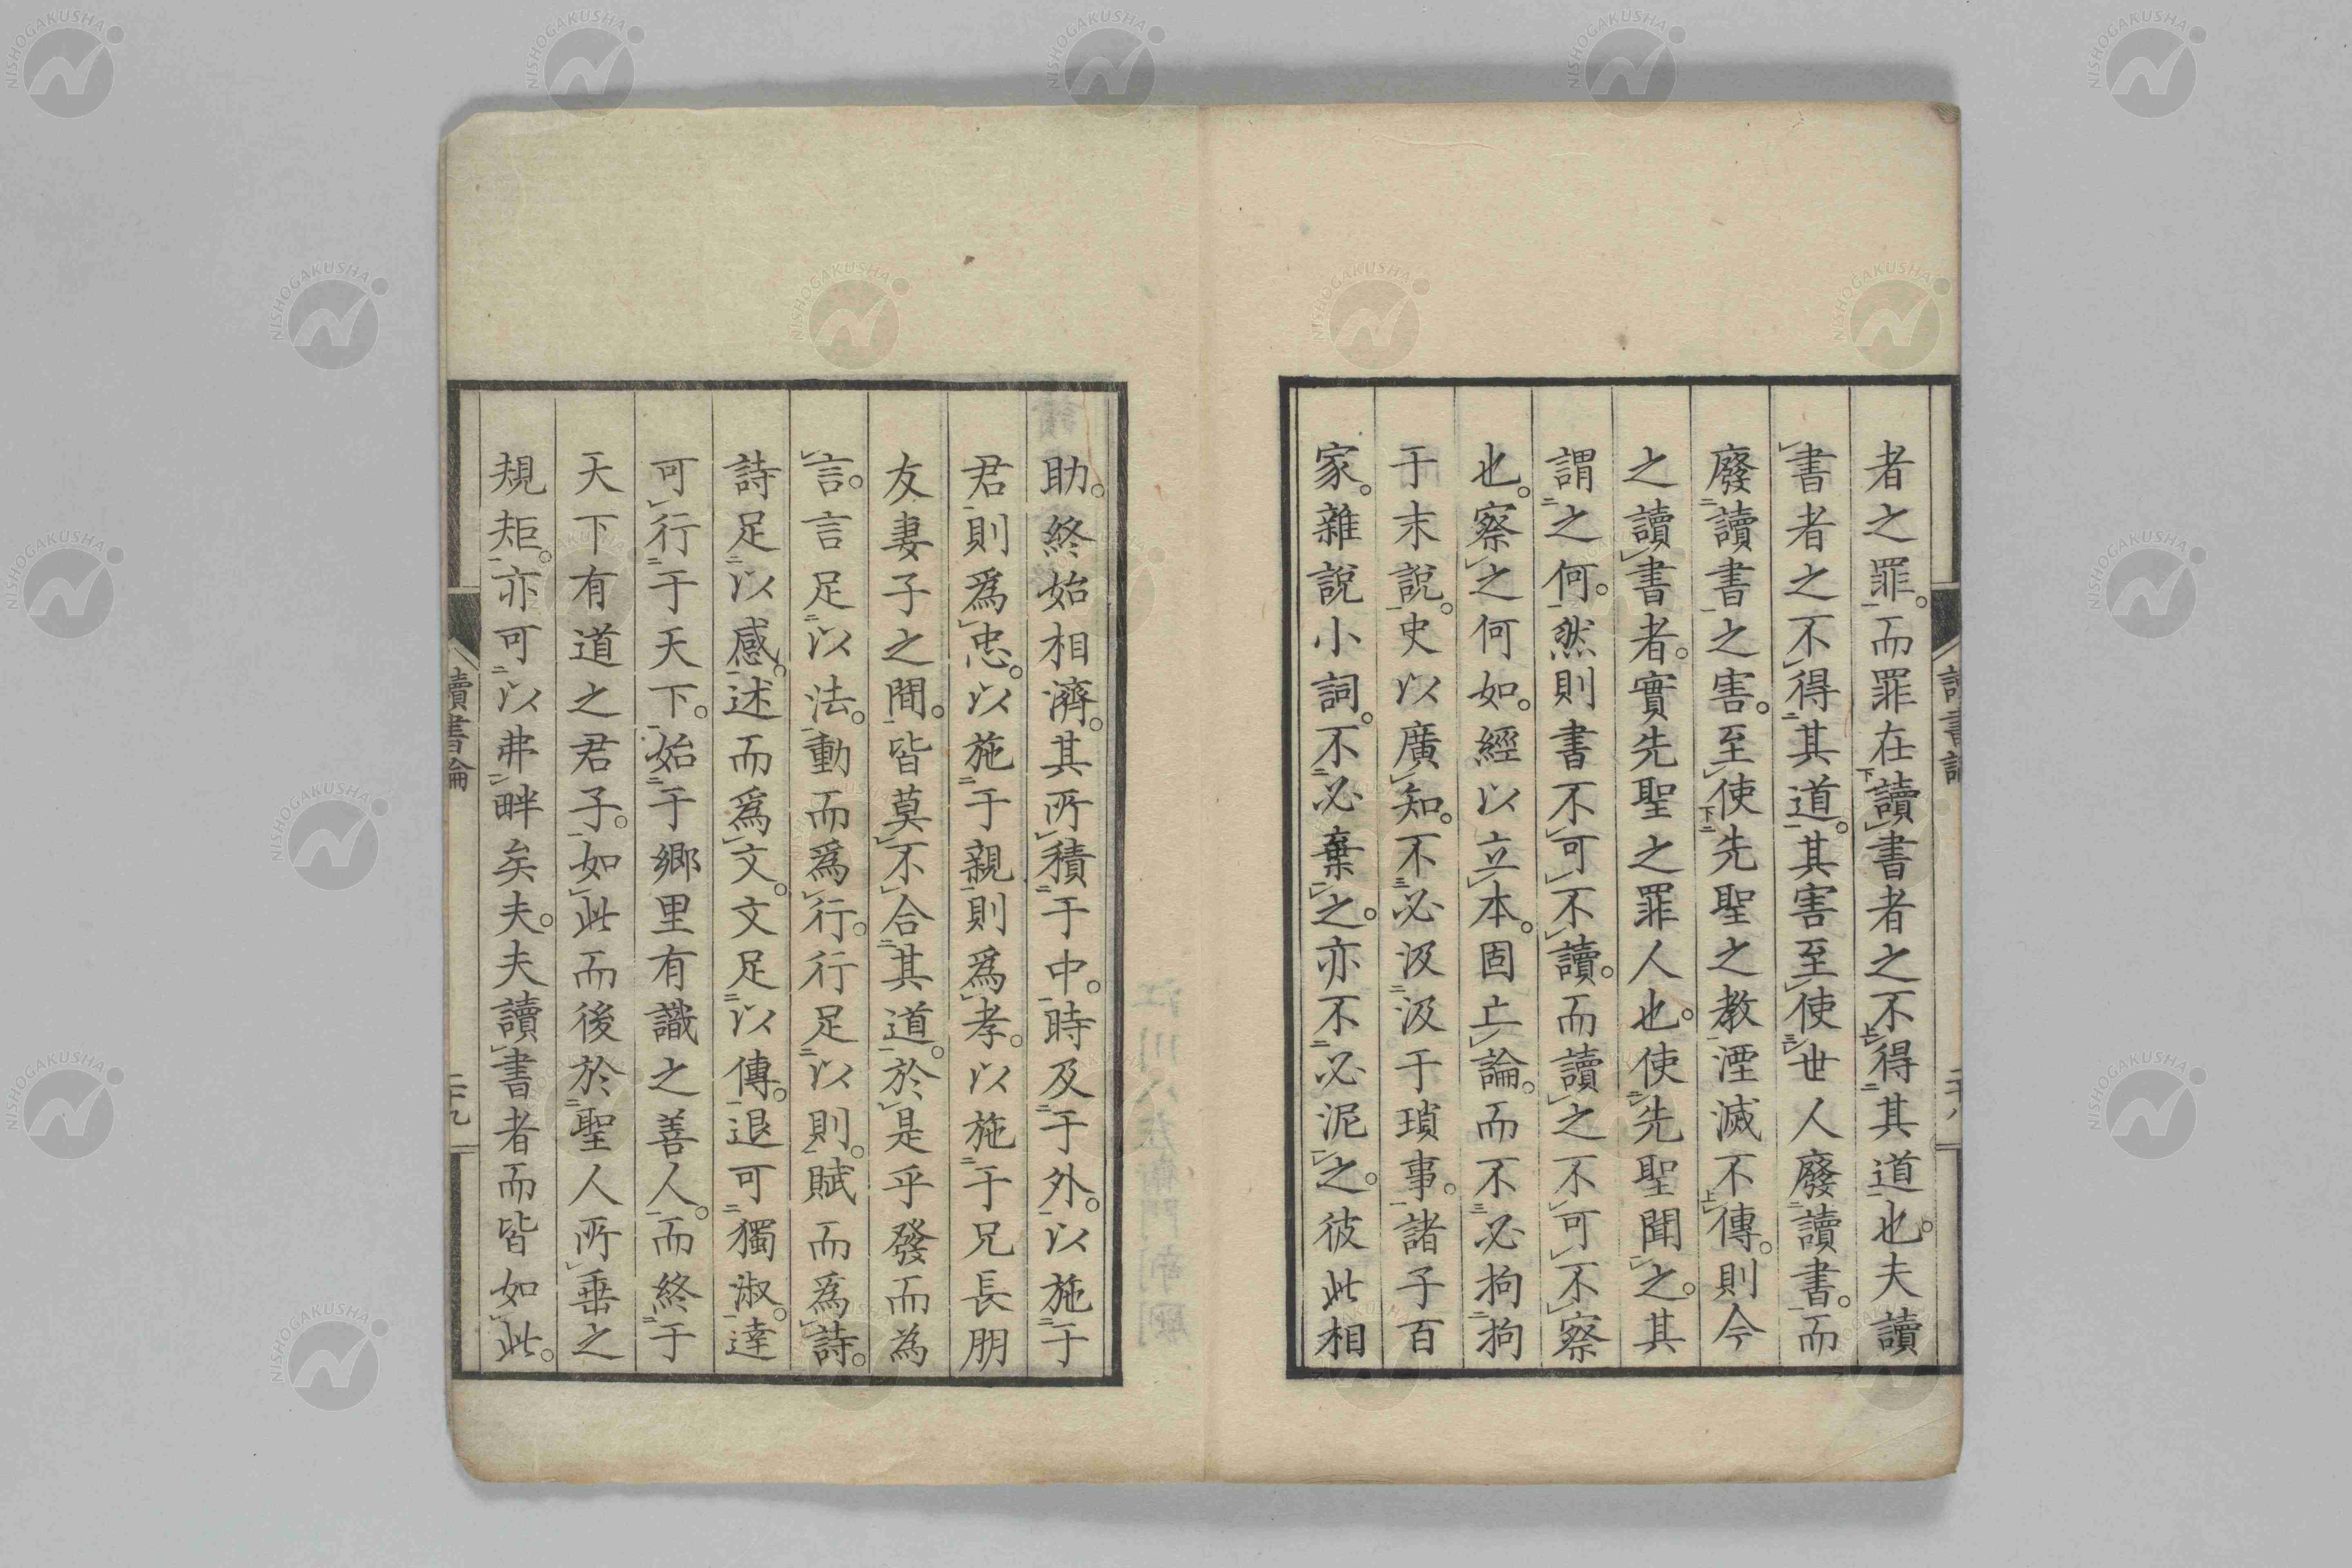 者之罪。而罪在讀書者之不得其道也。夫讀
書者之不得其道。其害至使世人廢讀書。而
廢讀書之害。至使先聖之教湮滅不傳。則今
之讀書者。實先聖之罪人也。使先聖聞之。其
謂之何。然則書不可不讀。而讀之不可不察
也。察之何如。經以立本。固亡論。而不必拘拘
于末說。史以廣知。不必汲汲于瑣事。諸子百
家。雜說小詞。不必棄之。亦不必泥之。彼此相
助。終始相濟。其所積于中。時及于外。以施于
君則爲忠。以施于親則爲孝。以施于兄長朋
友妻子之間。皆莫不合其道。於是乎發而為
言。言足以法。動而爲行。行足以則。賦而爲詩。
詩足以感。述而爲文。文足以傳。退可獨淑。達
可行于天下。始于鄉里有識之善人。而終于
天下有道之君子。如此而後於聖人所垂之
規矩。亦可以弗畔矣夫。夫讀書者而皆如此。
讀書論
二十九
NISHOGAKUSHA